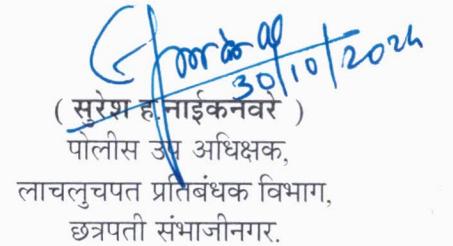 30/10/2024
( सुरेश ह.नाईकनवरे )
पोलीस उप अधिक्षक,
लाचलुचपत प्रतिबंधक विभाग,
छत्रपती संभाजीनगर.